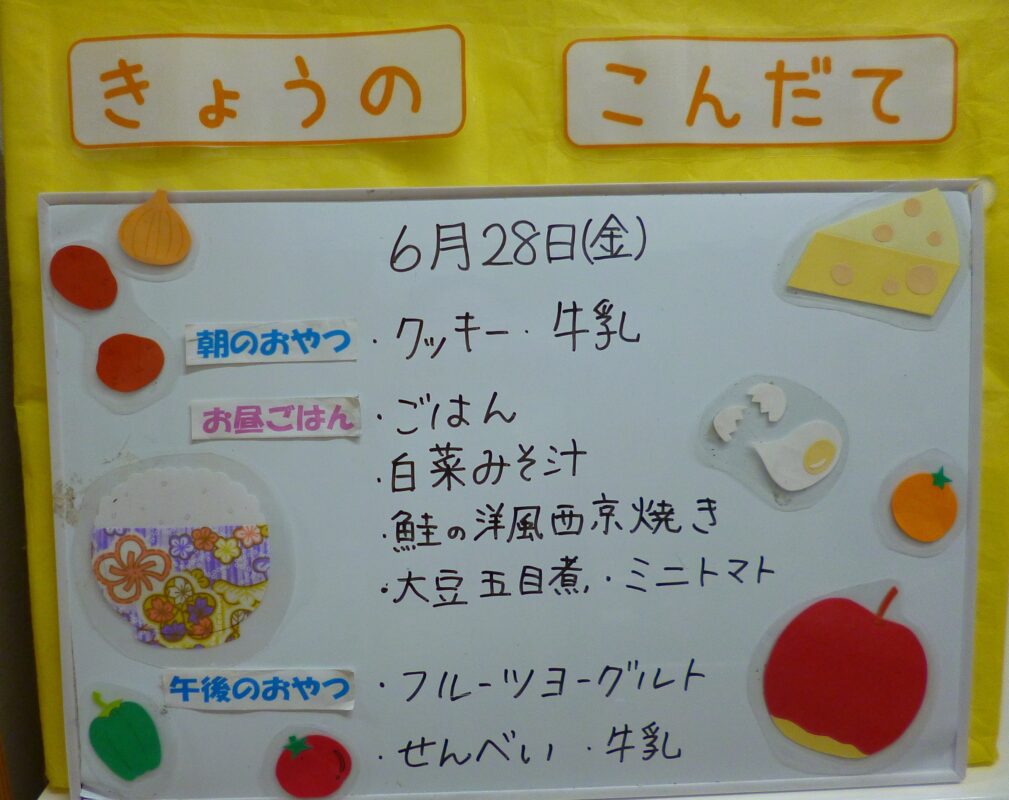 きょうの こんだて
6月28日(金)
朝のおやつ ・クッキー・牛乳
お昼ごはん ・ごはん
・白菜みそ汁
・鮭の洋風西京焼き
・大豆五目煮・ミニトマト
午後のおやつ ・フルーツヨーグルト
・せんべい ・牛乳